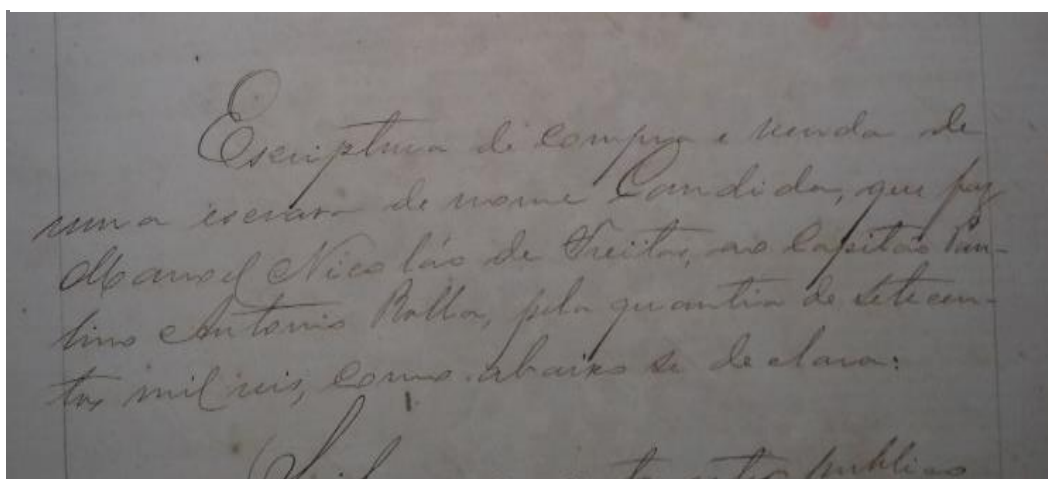 Escriptura de compra e venda de
uma escrava de nome Candida, que faz
Manoel Nicoláo de Freitas, ao Capitão Pau-
lino Antonio Rolla, pela quantia de setecen-
tos mil reis, como abaixo se declara:
publico